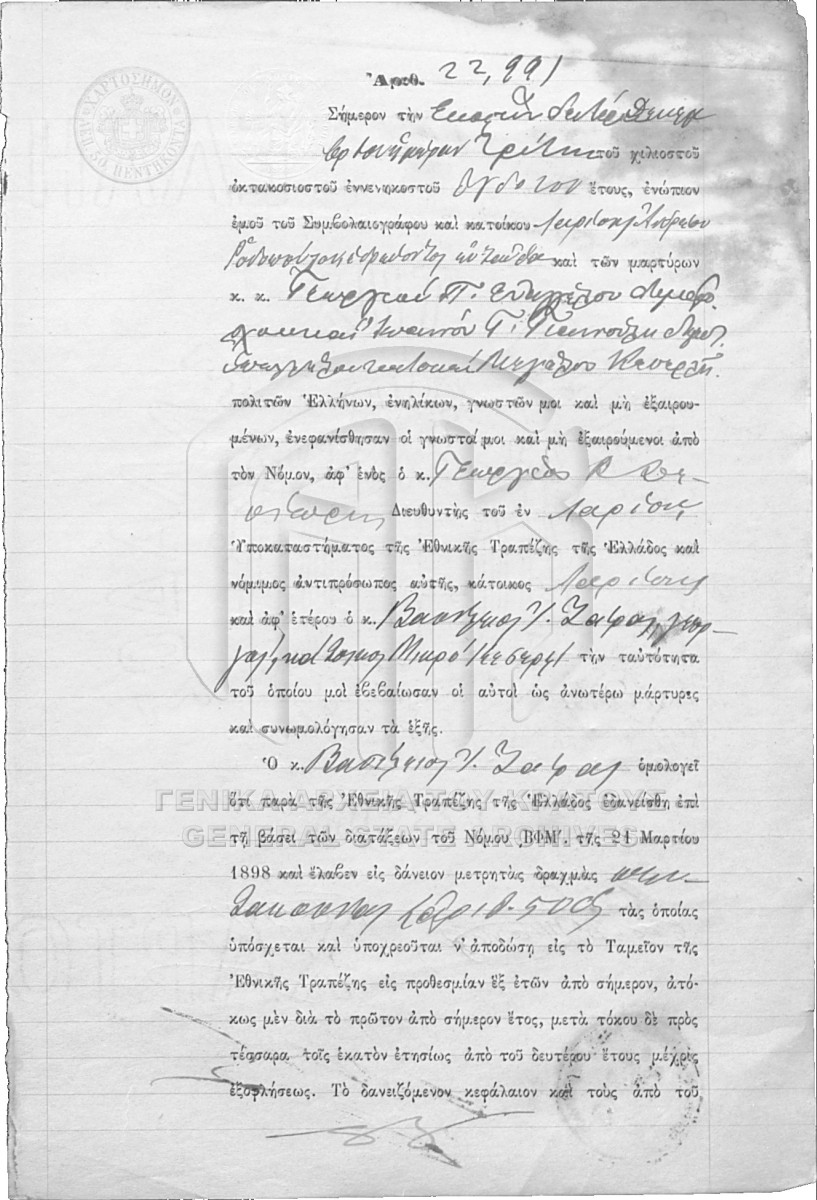 ΧΑΡΤΟΣΗΜΟΝ
Ἀριθ. 22,991
Σήμερον τὴν Εἰκοστὴν Δευτέραν Δεκεμ
βρίου ἡμέραν Τρίτην τοῦ χιλιοστοῦ
ὀκτακοσιοστοῦ ἐννενηκοστοῦ ὀγδόου ἔτους, ἐνώπιον
ἐμοῦ τοῦ Συμβολαιογράφου καὶ κατοίκου Λαρίσης Ἀνδρέου
Ροδοπούλου ἑδρεύοντος ἐνταῦθα καὶ τῶν μαρτύρων
κ. κ. Γεωργίου Π. Εὐαγγέλου
καὶ Ἰωάννου Γ. Γιαννούλη
Μεγάλου Κεσερλῆ
πολιτῶν Ἑλλήνων, ἐνηλίκων, γνωστῶν μοι καὶ μὴ ἐξαιρου-
μένων, ἐνεφανίσθησαν οἱ γνωστοί μοι καὶ μὴ ἐξαιρούμενοι ἀπὸ
τὸν Νόμον, ἀφ' ἑνὸς ὁ κ. Γεώργιος
Διευθυντὴς τοῦ ἐν Λαρίσῃ
Ὑποκαταστήματος τῆς Ἐθνικῆς Τραπέζης τῆς Ἑλλάδος καὶ
νόμιμος ἀντιπρόσωπος αὐτῆς, κάτοικος Λαρίσης
καὶ ἀφ' ἑτέρου ὁ κ. Βασίλειος Ν. Ζάφας, γεωρ-
γός, κάτοικος Μικρό Κεσερλῆ τὴν ταὐτότητα
τοῦ ὁποίου μοὶ ἐβεβαίωσαν οἱ αὐτοὶ ὡς ἀνωτέρω μάρτυρες
καὶ συνωμολόγησαν τὰ ἑξῆς.
Ὁ κ. Βασίλειος Ν. Ζάφας ὁμολογεῖ
ΓΕΝΙΚΑ ΑΡΧΕΙΑ ΤΟΥ ΚΡΑΤΟΥΣ
ὅτι παρὰ τῆς Ἐθνικῆς Τραπέζης τῆς Ἑλλάδος ἐδανείσθη ἐπὶ
GENERAL STATE ARCHIVES
τῇ βάσει τῶν διατάξεων τοῦ Νόμου ͵ΒΦΜʹ. τῆς 21 Μαρτίου
1898 καὶ ἔλαβεν εἰς δάνειον μετρητὰς δραχμὰς πεν-
τακοσίας (ἀριθ. 500) τὰς ὁποίας
ὑπόσχεται καὶ ὑποχρεοῦται ν' ἀποδώσῃ εἰς τὸ Ταμεῖον τῆς
Ἐθνικῆς Τραπέζης εἰς προθεσμίαν ἓξ ἐτῶν ἀπὸ σήμερον, ἀτό-
κως μὲν διὰ τὸ πρῶτον ἀπὸ σήμερον ἔτος, μετὰ τόκου δὲ πρὸς
τέσσαρα τοῖς ἑκατὸν ἐτησίως ἀπὸ τοῦ δευτέρου ἔτους μέχρις
ἐξοφλήσεως. Τὸ δανειζόμενον κεφάλαιον καὶ τοὺς ἀπὸ τοῦ